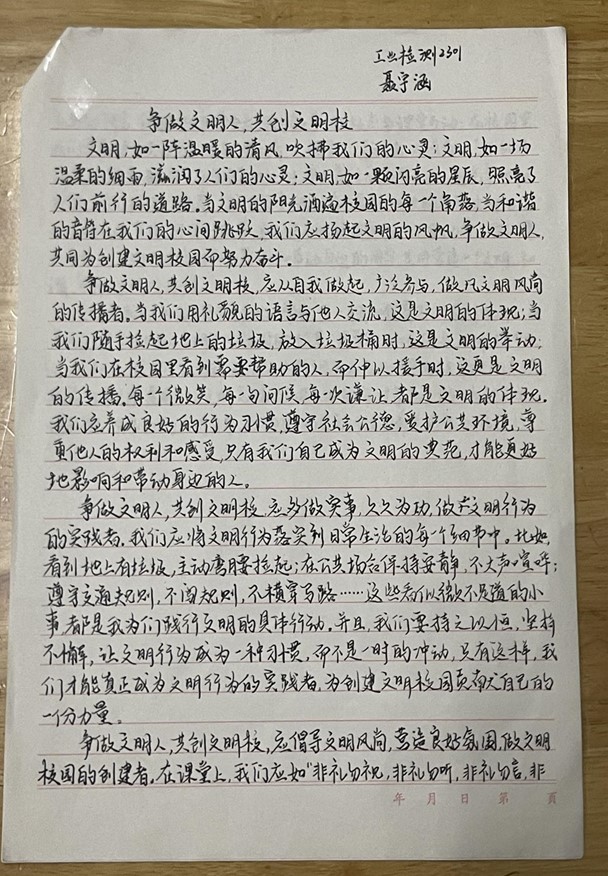 工业检测2301
聂宇涵
争做文明人,共创文明校
文明,如一阵温暖的清风,吹拂我们的心灵;文明,如一场
温柔的细雨,滋润了人们的心灵;文明,如一颗闪亮的星辰,照亮了
人们前行的道路。当文明的阳光洒遍校园的每一个角落,当和谐
的音符在我们的心间跳跃,我们应扬起文明的风帆,争做文明人,
共同为创建文明校园而努力奋斗。
争做文明人,共创文明校,应从自我做起,广泛参与,做凡文明风尚
的传播者。当我们用礼貌的语言与他人交流,这是文明的体现;当
我们随手捡起地上的垃圾,放入垃圾桶时,这是文明的举动;
当我们在校园里看到需要帮助的人,而伸以援手时,这更是文明
的传播。每一个微笑,每一句问候,每一次谦让,都是文明的体现。
我们应养成良好的行为习惯,遵守社会公德,爱护公共环境,尊
重他人的权利和感受,只有我们自己成为文明的典范,才能更好
地影响和带动身边的人。
争做文明人,共创文明校,应多做实事,久久为功,做文明行为
的实践者。我们应将文明行为落实到日常生活的每一个细节中。比如,
看到地上有垃圾,主动弯腰捡起;在公共场合保持安静,不大声喧哗;
遵守交通规则,不闯规则,不横穿马路……这些看似微不足道的小
事,都是我为们践行文明的具体行动。并且,我们要持之以恒,坚持
不懈,让文明行为成为一种习惯,而不是一时的冲动,只有这样,我
们才能真正成为文明行为的实践者,为创建文明校园贡献自己的
一份力量。
争做文明人,共创文明校,应倡导文明风尚,营造良好氛围,做文明
校园的创建者。在课堂上,我们应如“非礼勿视,非礼勿听,非礼勿言,非
年 月 日 第 頁